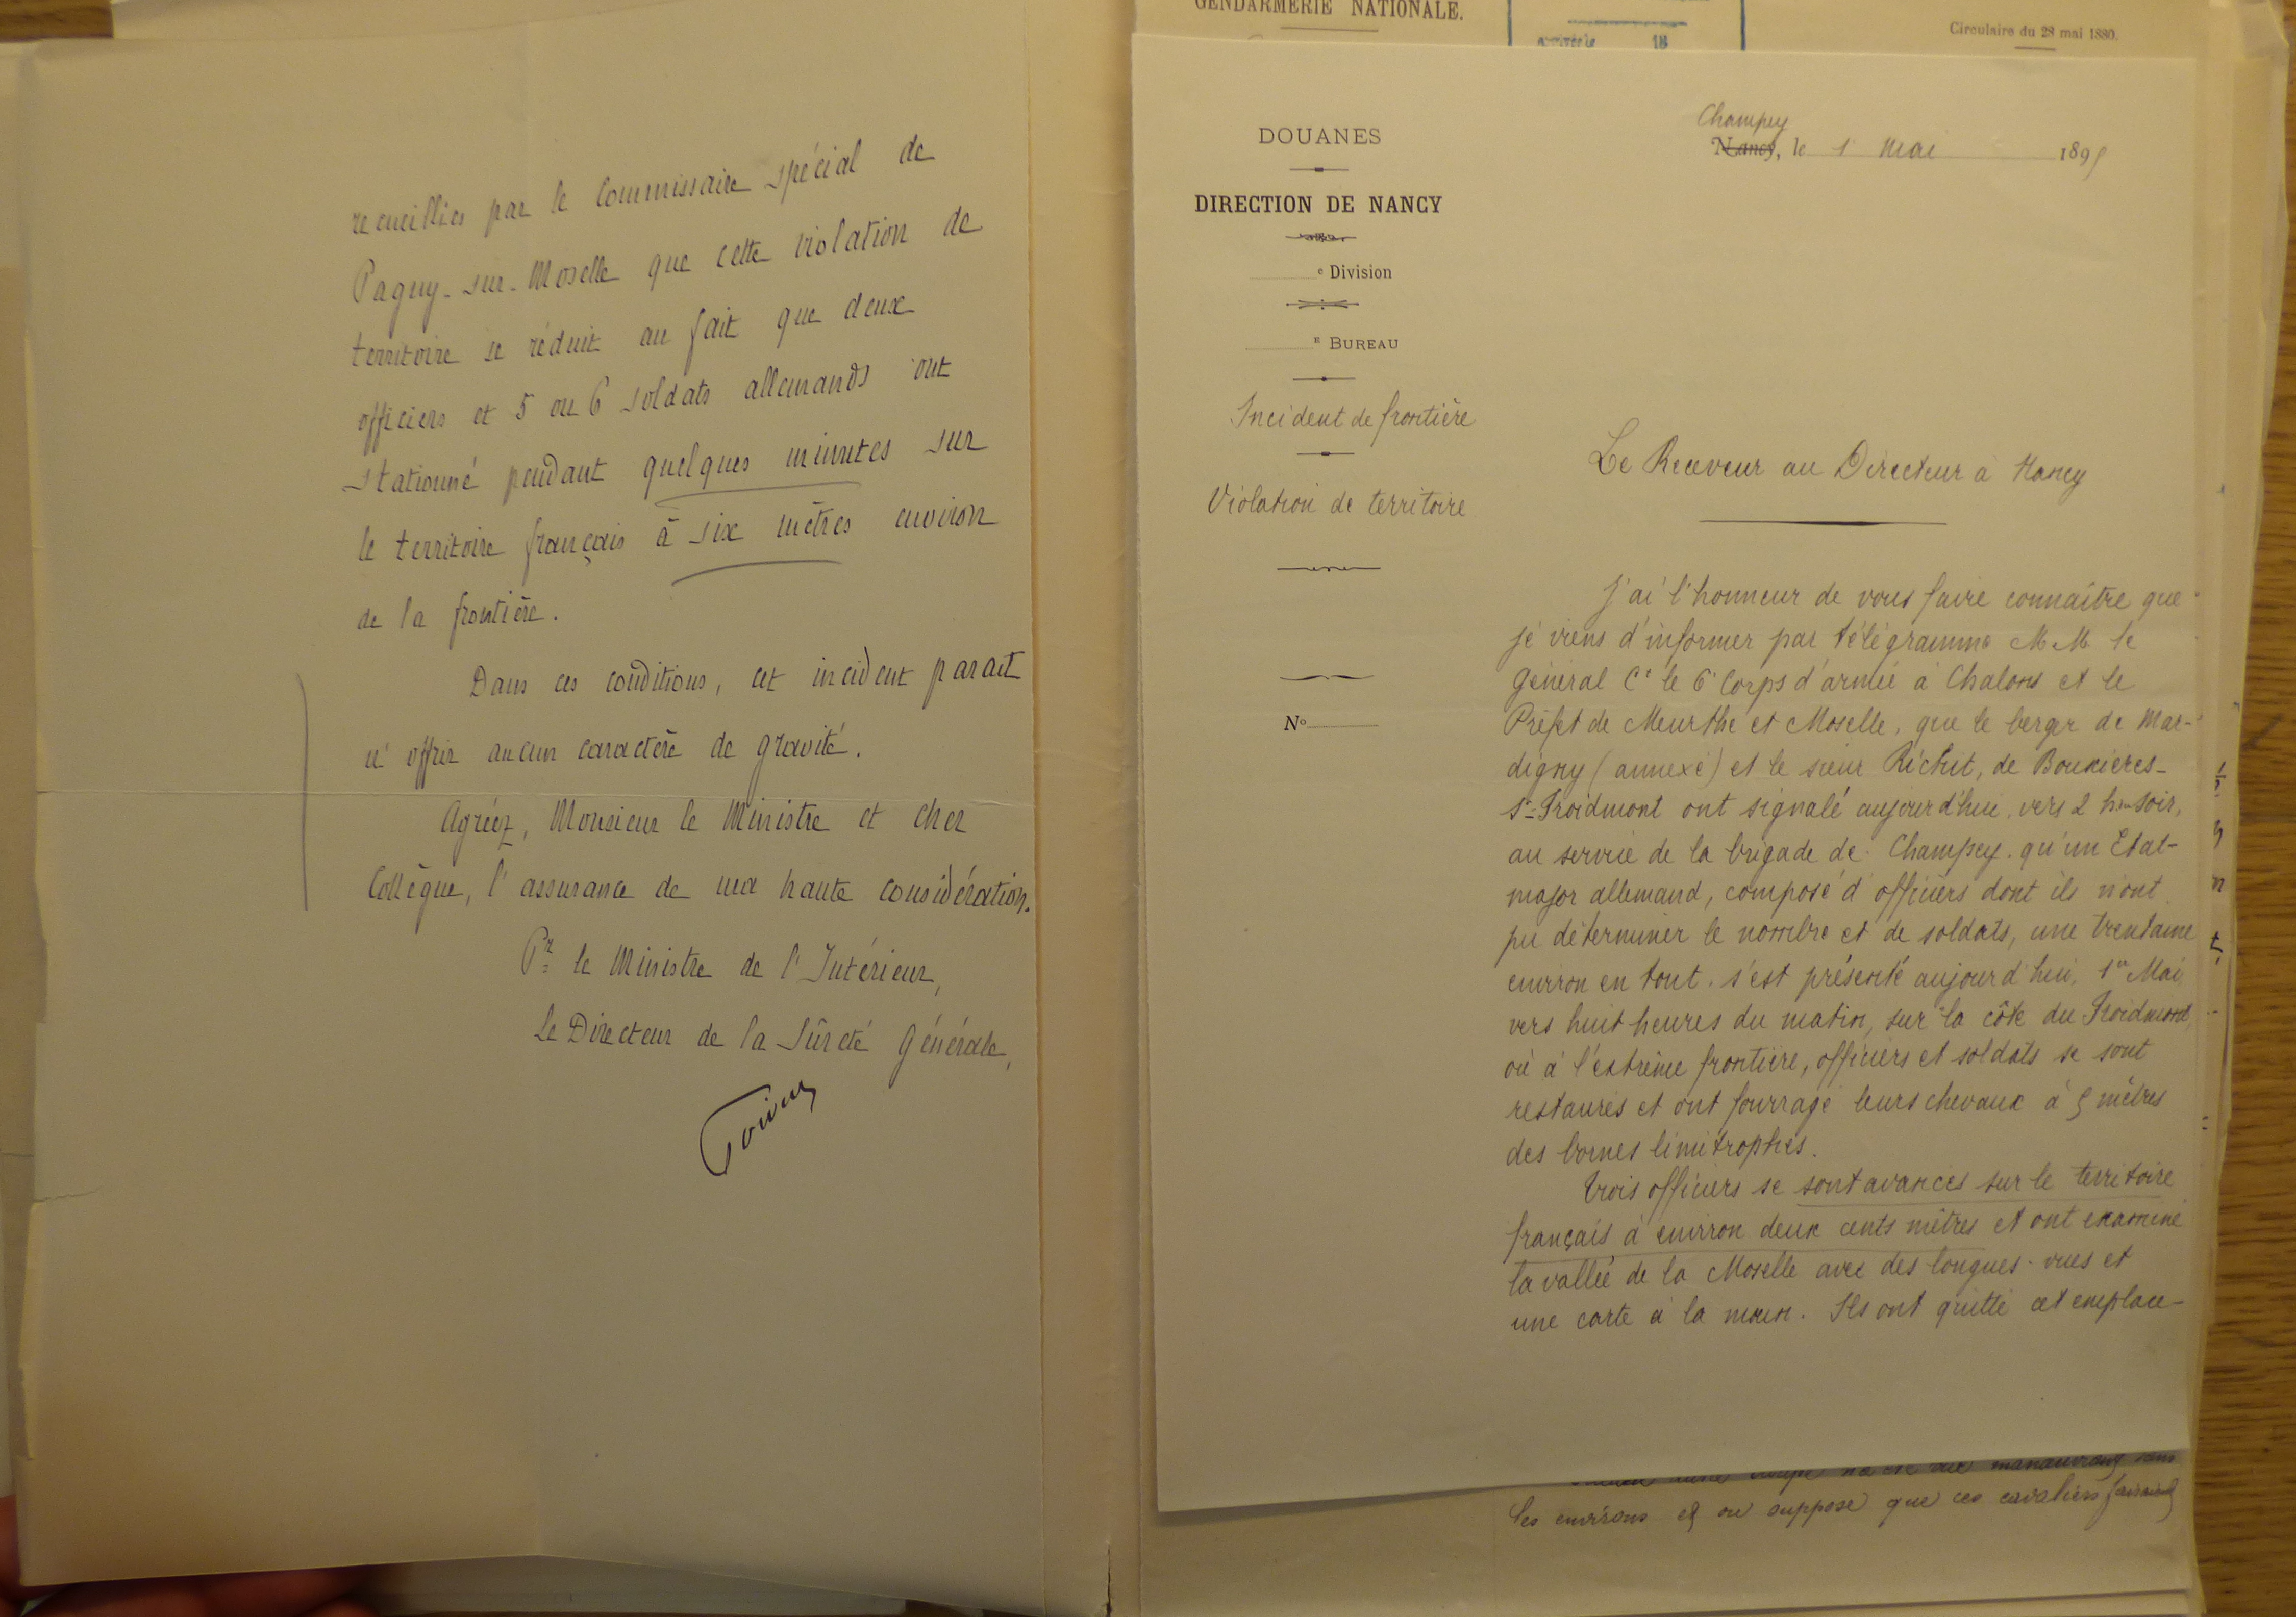 recueillies par le Commissaire spécial de
Pagny-sur-Moselle que cette violation de
territoire se réduit au fait que deux
officiers et 5 ou 6 soldats allemands ont
stationné pendant quelques minutes sur
le territoire français à six mètres environ
de la frontière.
Dans ces conditions, cet incident parait
n'offrir aucun caractère de gravité.
Agréez, Monsieur le Ministre et cher
Collègue, l'assurance de ma haute considération.
Pr le Ministre de l'Intérieur,
Le Directeur de la Sûreté Générale,
GENDARMERIE NATIONALE.
18
Circulaire du 28 mai 1880.
DOUANES
DIRECTION DE NANCY
e Division
E BUREAU
Incident de frontière
Violation de territoire
No
Champey
Nancy, le 1 Mai 1895
Le Receveur au Directeur à Nancy
J'ai l'honneur de vous faire connaître que
je viens d'informer par télégramme M.M. le
Général Ct le 6e Corps d'armée à Chalons et le
Préfet de Meurthe et Moselle, que le berger de Mar-
digny (annexé) et le sieur de Bouxières-
s/s-Froidmont ont signalé aujourd'hui, vers 2 h. soir,
au service de la brigade de Champey, qu'un Etat-
major allemand, composé d'officiers dont ils n'ont
pu déterminer le nombre et de soldats, une trentaine
environ en tout, s'est présenté aujourd'hui, 1er Mai,
vers huit heures du matin, sur la côte du Froidmont,
où à l'extrême frontière, officiers et soldats se sont
restaurés et ont fourragé leurs chevaux à 5 mètres
des bornes limitrophes.
Trois officiers se sont avancés sur le territoire
français à environ deux cents mètres et ont examiné
la vallée de la Moselle avec des longues-vues et
une carte à la main. Ils ont quitté cet emplace-
les environs et on suppose que ces cavaliers